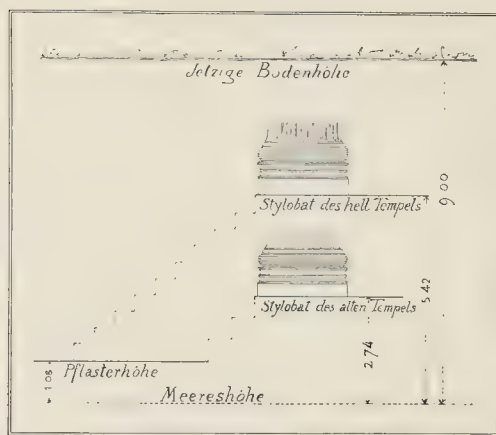 Jetzige Bodenhöhe
Stylobat des hell Tempels
9 00
Stylobat des alten Tempels
5.42
2.74
Pflasterhöhe
1 08
Meereshöhe